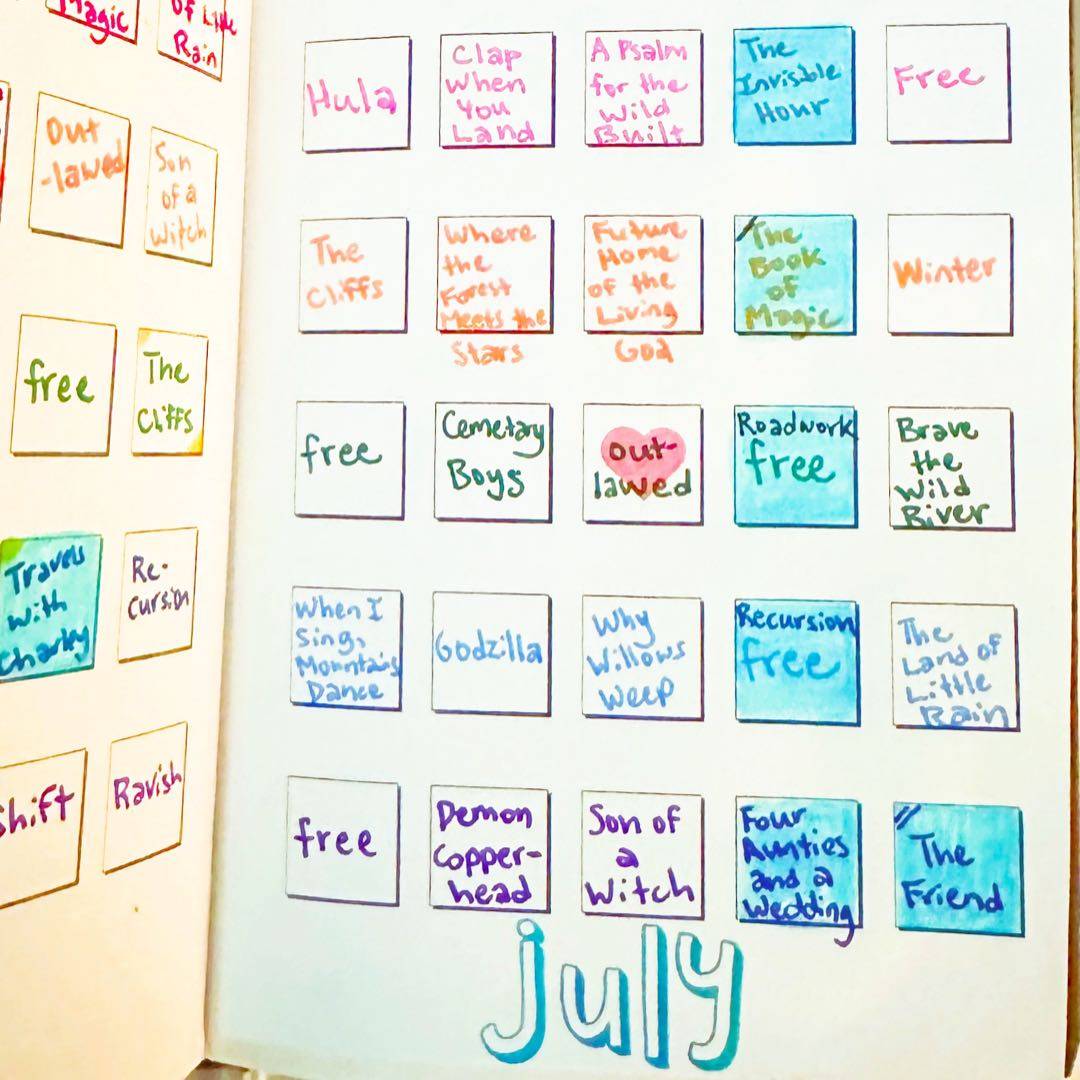 Magic
of Little
Rain
Out
-lawed
Son
of a
Witch
free
The
Cliffs
Travels
with
Charley
Re-
cursion
Shift
Ravish
Hula
Clap
When
You
Land
A Psalm
for the
Wild
Built
The
Invisible
Hour
Free
The
Cliffs
Where
the
Forest
Meets the
Stars
Future
Home
of the
Living
God
The
Book
of
Magic
Winter
free
Cemetary
Boys
out-
lawed
Roadwork
free
Brave
the
Wild
River
When I
Sing,
Mountains
Dance
Godzilla
Why
Willows
Weep
Recursion
free
The
Land of
Little
Rain
free
Demon
Copper-
head
Son of
a
Witch
Four
Aunties
and a
Wedding
The
Friend
july